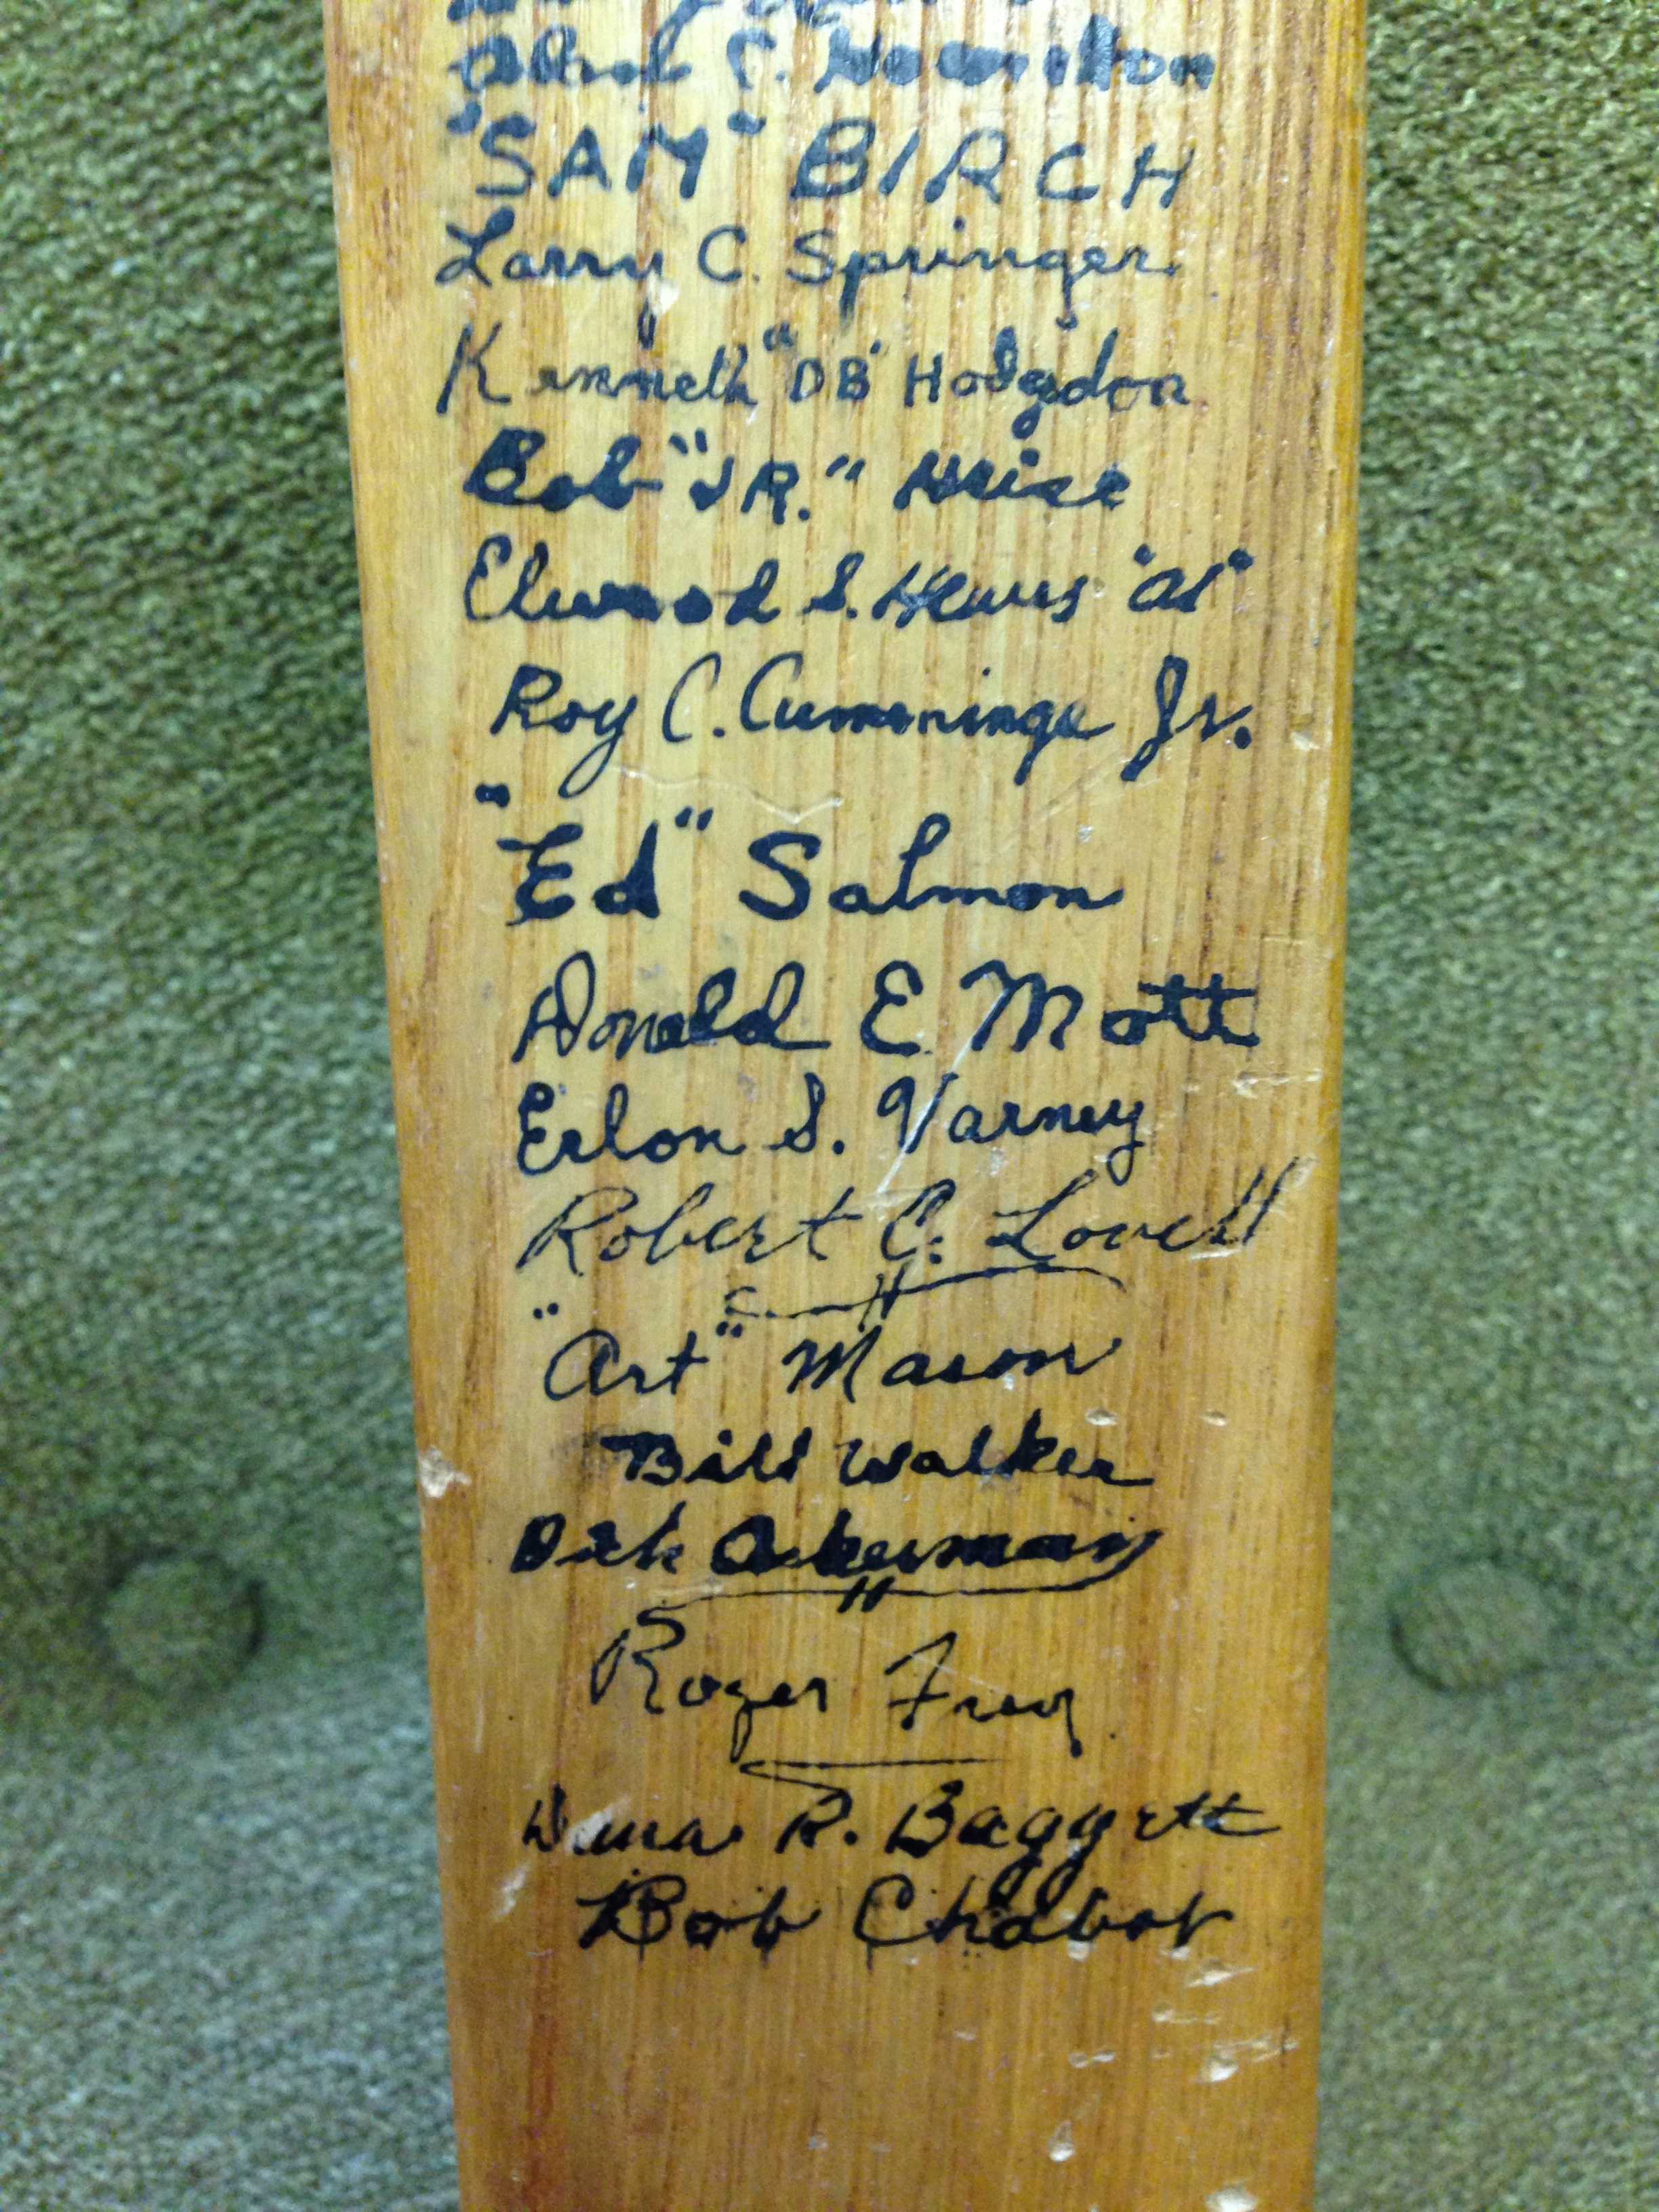 C. Hamilton
"SAM" BIRCH
Larry C. Springer
Kenneth "DB" Hodgdon
Bob "JR." Heise
Elwood S. Hews "Al"
Roy C. Cummings Jr.
"Ed" Salmon
Donald E. Mott
Erlon S. Varney
Robert C. Lovell
"Art" Mason
Bill Walker
Dick Akerman
Roger Frey
Dana R. Baggett
Bob Chabot